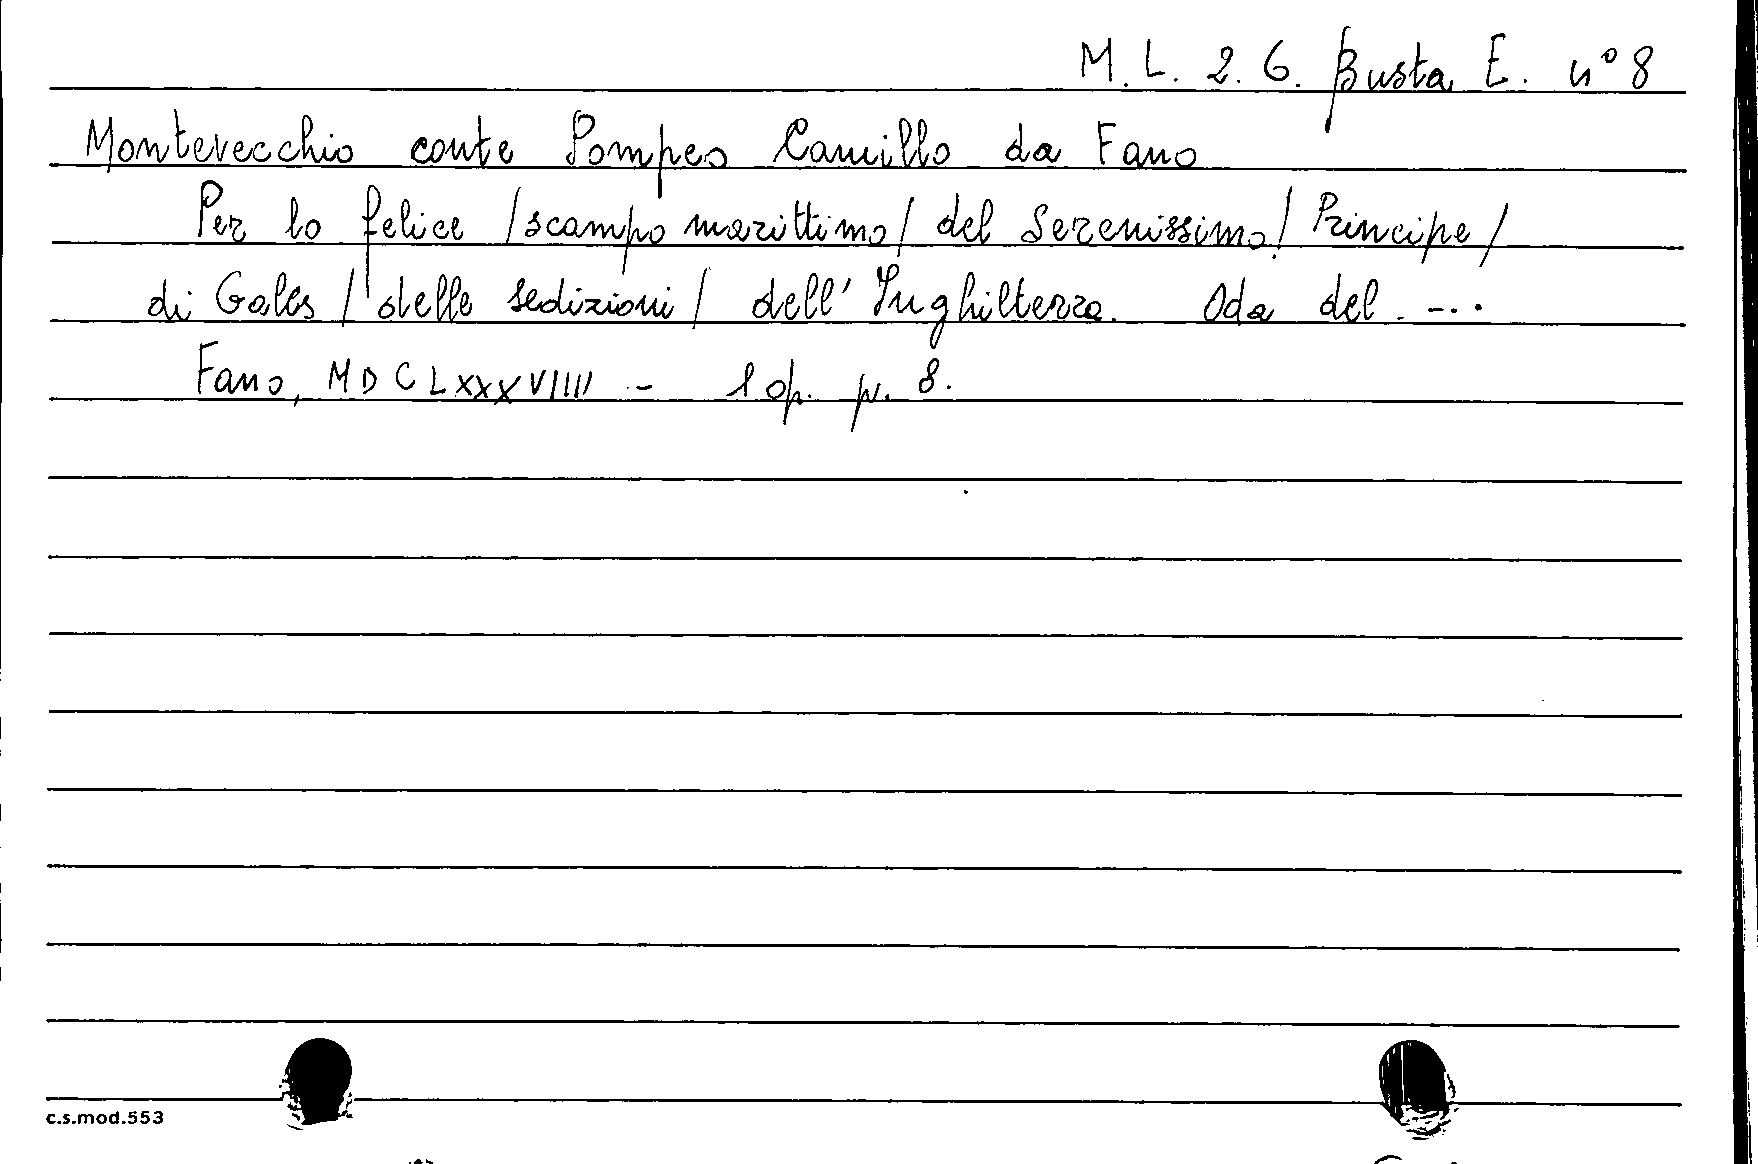 M. L. 2. 6. Busta E. n° 8
Montevecchio conte Pompeo Camillo da Fano
Per lo felice / scampo marittimo / del Serenissimo / Principe /
di Gales / delle sedizioni / dell' Inghilterra. Oda del ....
Fano, MDCLXXXVIIII - 1 op. p. 8.
c.s.mod.553